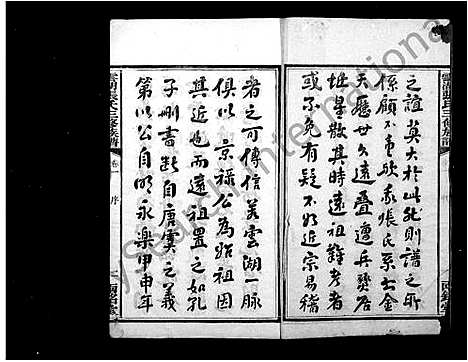 之誼莫大於此然則譜之所
係顧不重欤我張氏系出金
天歷世久遠疊遭兵燹居
址星散其時遠祖難考者
或不免有疑不好近宗易稽
者之可傳信若雲湖一脉
俱以京祿公為始祖因
其近也而遠祖置之如孔
子刪書斷自唐虞之義
第以公自明永樂甲申年
雲湖張氏三修族譜
卷一
序
雲湖張氏三修族譜